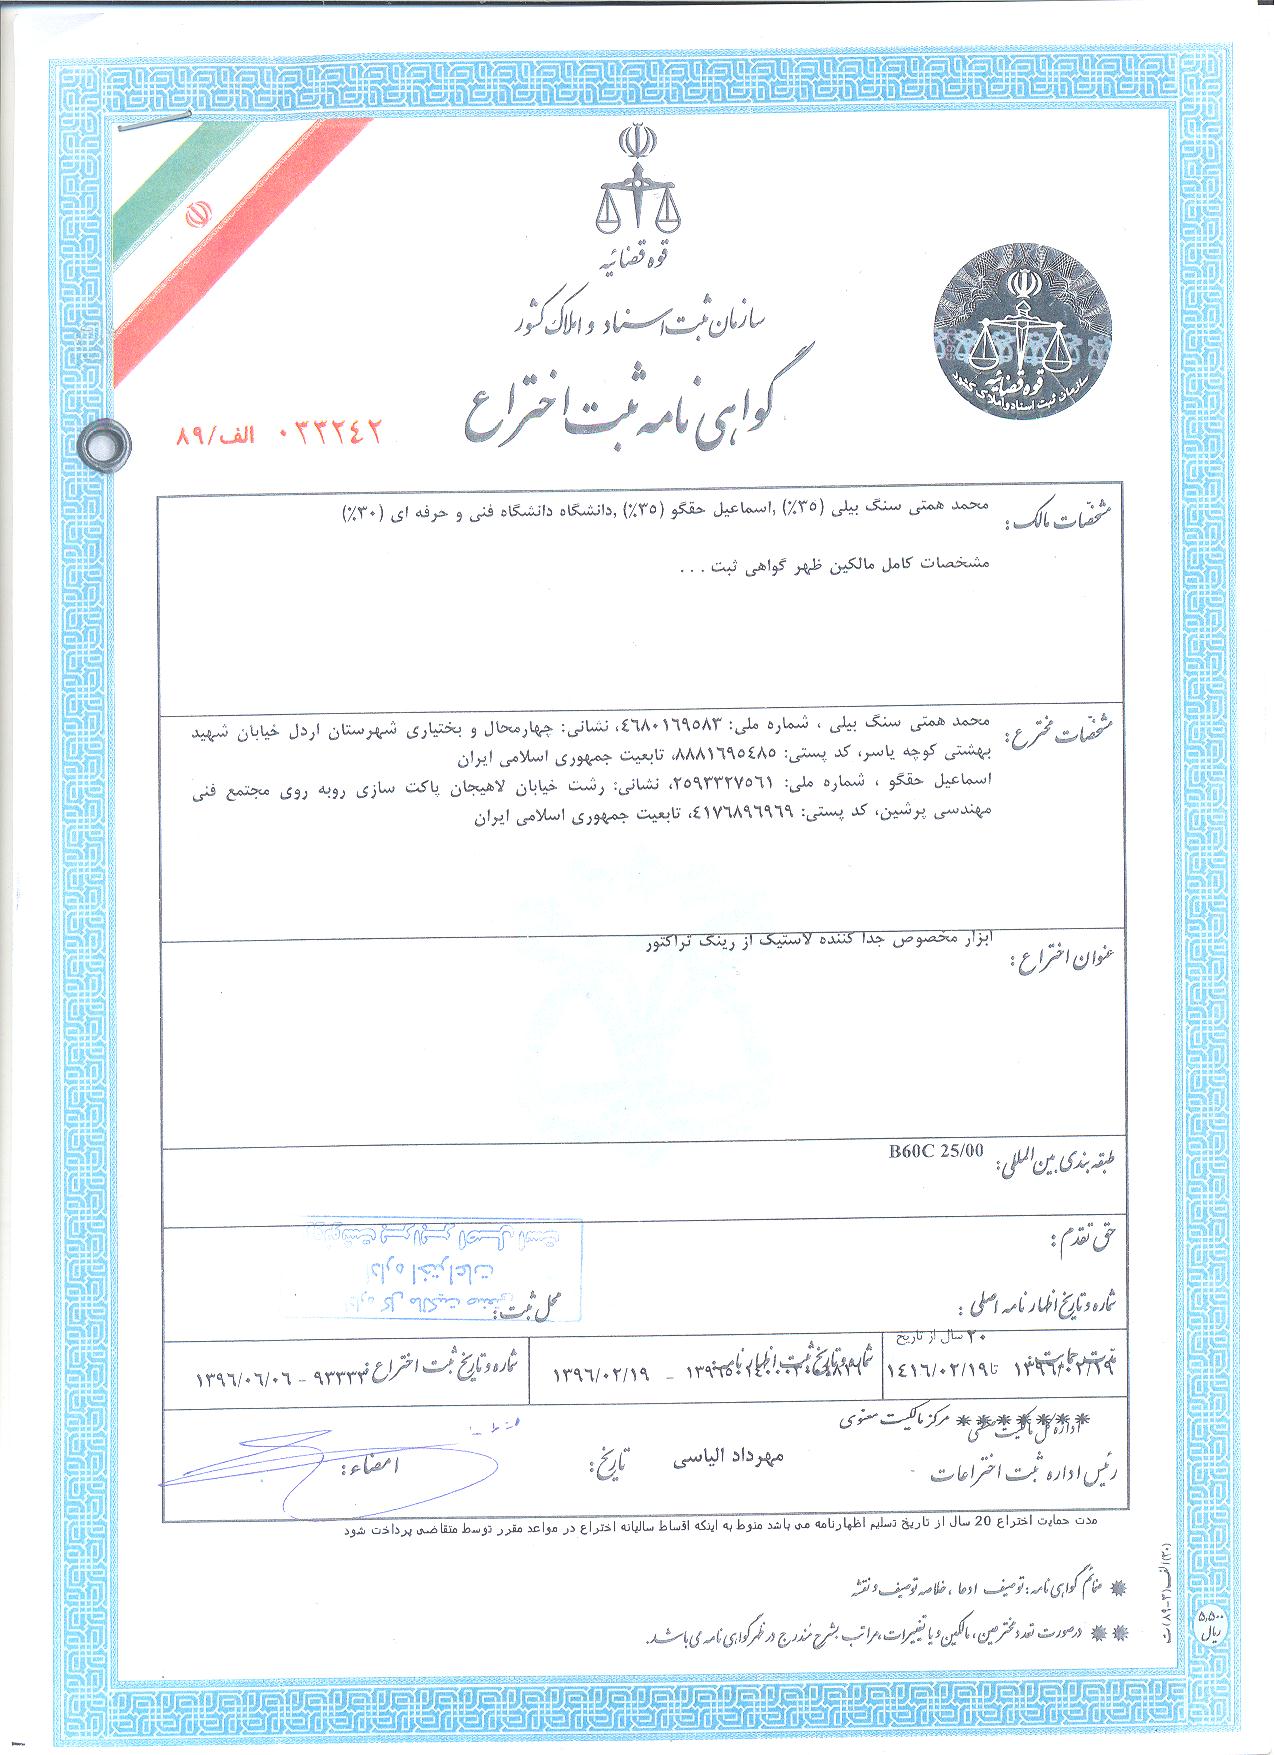 قوه قضائیه
سازمان ثبت اسناد و املاک کشور
گواهی نامه ثبت اختراع
قوه قضائیه
سازمان ثبت اسناد و املاک کشور
۰۳۳۲۴۲ الف/۸۹
مشخصات مالک:
محمد همتی سنگ بیلی (۳۵٪) ,اسماعیل حقگو (۳۵٪) ,دانشگاه دانشگاه فنی و حرفه ای (۳۰٪)
مشخصات کامل مالکین ظهر گواهی ثبت . . .
مشخصات مخترع:
محمد همتی سنگ بیلی ، شماره ملی: ۴۶۸۰۱۶۹۵۸۳، نشانی: چهارمحال و بختیاری شهرستان اردل خیابان شهید
بهشتی کوچه یاسر، کد پستی: ۸۸۸۱۶۹۵۴۸۵، تابعیت جمهوری اسلامی ایران
اسماعیل حقگو ، شماره ملی: ۲۵۹۳۳۲۷۵۶۱، نشانی: رشت خیابان لاهیجان پاکت سازی روبه روی مجتمع فنی
مهندسی پرشین، کد پستی: ۴۱۷۶۸۹۶۹۶۹، تابعیت جمهوری اسلامی ایران
عنوان اختراع:
ابزار مخصوص جدا کننده لاستیک از رینگ تراکتور
طبقه بندی بین المللی:
B60C 25/00
حق تقدم:
شماره و تاریخ اظهارنامه اصلی:
محل ثبت:
اداره کل مالکیت صنعتی
اداره اختراعات
۲۰ سال از تاریخ
۱۳۹۶/۰۲/۱۹ تا ۱۴۱۶/۰۲/۱۹
شماره و تاریخ ثبت اظهارنامه:
- ۱۳۹۶/۰۲/۱۹
شماره و تاریخ ثبت اختراع: ۹۳۳۳۳ - ۱۳۹۶/۰۶/۰۶
مرکز مالکیت معنوی
اداره کل مالکیت صنعتی
رئیس اداره ثبت اختراعات
مهرداد الیاسی
تاریخ:
امضاء:
مدت حمایت اختراع 20 سال از تاریخ تسلیم اظهارنامه می باشد منوط به اینکه اقساط سالیانه اختراع در مواعد مقرر توسط متقاضی پرداخت شود
ضمائم گواهی نامه: توصیف ادعا ، خلاصه توصیف و نقشه
درصورت تعدد مخترعین، مالکین و یا تغییرات، مراتب بشرح مندرج در ظهر گواهی نامه می باشد.
۵,۵۰۰
ریال